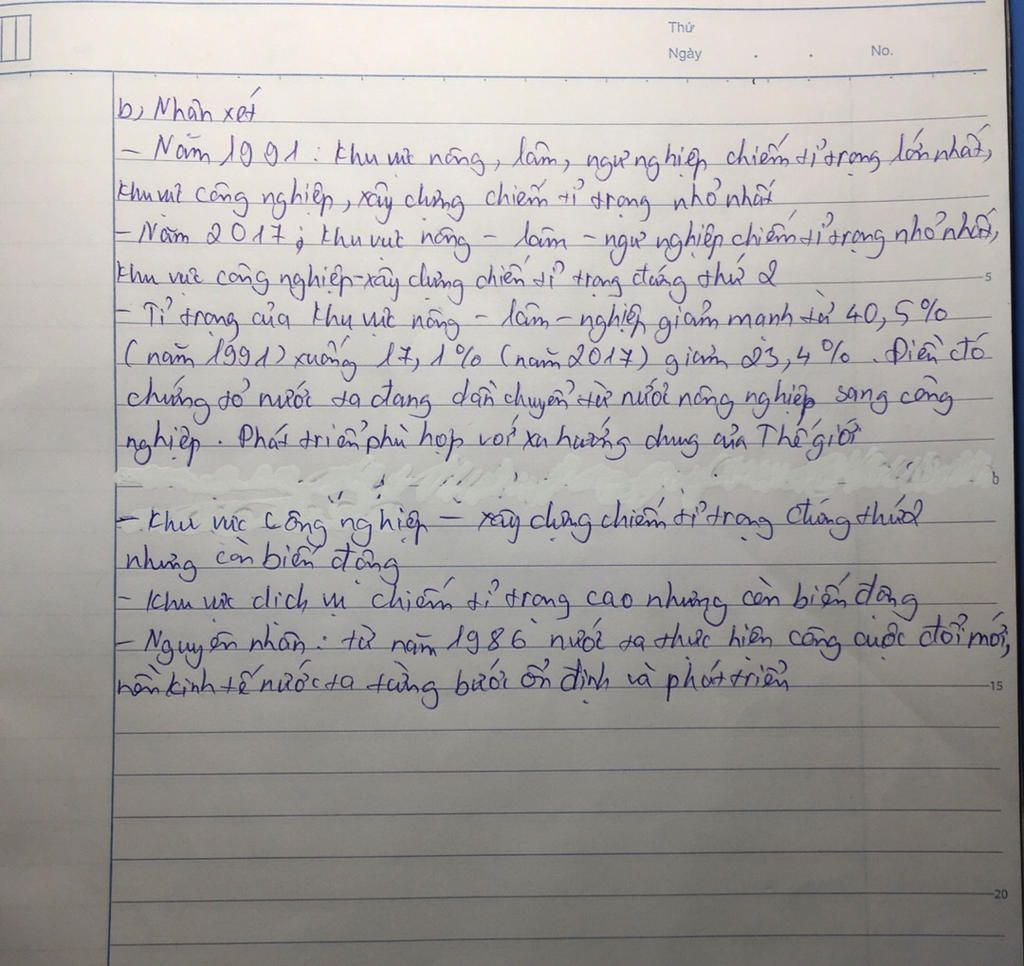 Thứ
Ngày . . No.
b, Nhận xét
- Năm 1991: Khu vực nông, lâm, ngư nghiệp chiếm tỉ trọng lớn nhất,
khu vực công nghiệp, xây dựng chiếm tỉ trọng nhỏ nhất
- Năm 2017: Khu vực nông - lâm - ngư nghiệp chiếm tỉ trọng nhỏ nhất,
khu vực công nghiệp-xây dựng chiến tỉ trọng đứng thứ 2
5
- Tỉ trọng của khu vực nông - lâm - nghiệp giảm mạnh từ 40,5%
(năm 1991) xuống 17,1% (năm 2017) giảm 23,4%. Điền đó
chứng tỏ nước ta đang dần chuyển từ nước nông nghiệp sang công
nghiệp. Phát triển phù hợp với xu hướng chung của Thế giới
- Khu vực công nghiệp - xây dựng chiếm tỉ trọng đứng thứ 2
nhưng còn biến động
- Khu vực dịch vụ chiếm tỉ trọng cao nhưng còn biến động
- Nguyên nhân: từ năm 1986 nước ta thực hiện công cuộc đổi mới,
nền kinh tế nước ta từng bước ổn định và phát triển
15
20